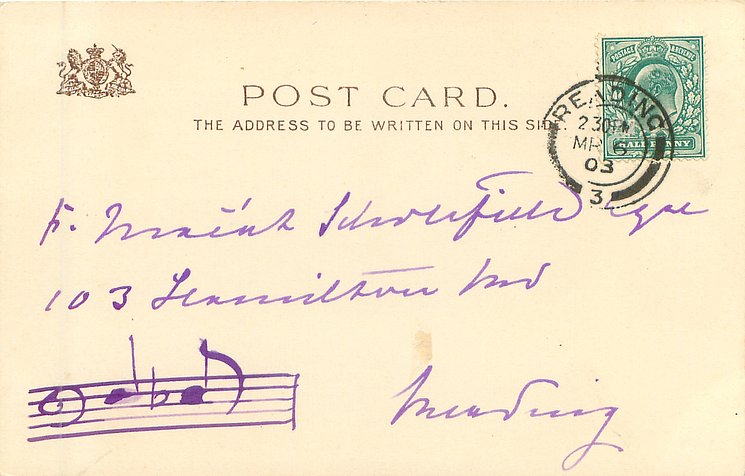 POST CARD.
THE ADDRESS TO BE WRITTEN ON THIS SIDE.
POSTAGE & REVENUE
HALFPENNY
READING
2 30 PM
MR 6
03
3
F. Scholefield Esqre
103 Hamilton Rd
Reading